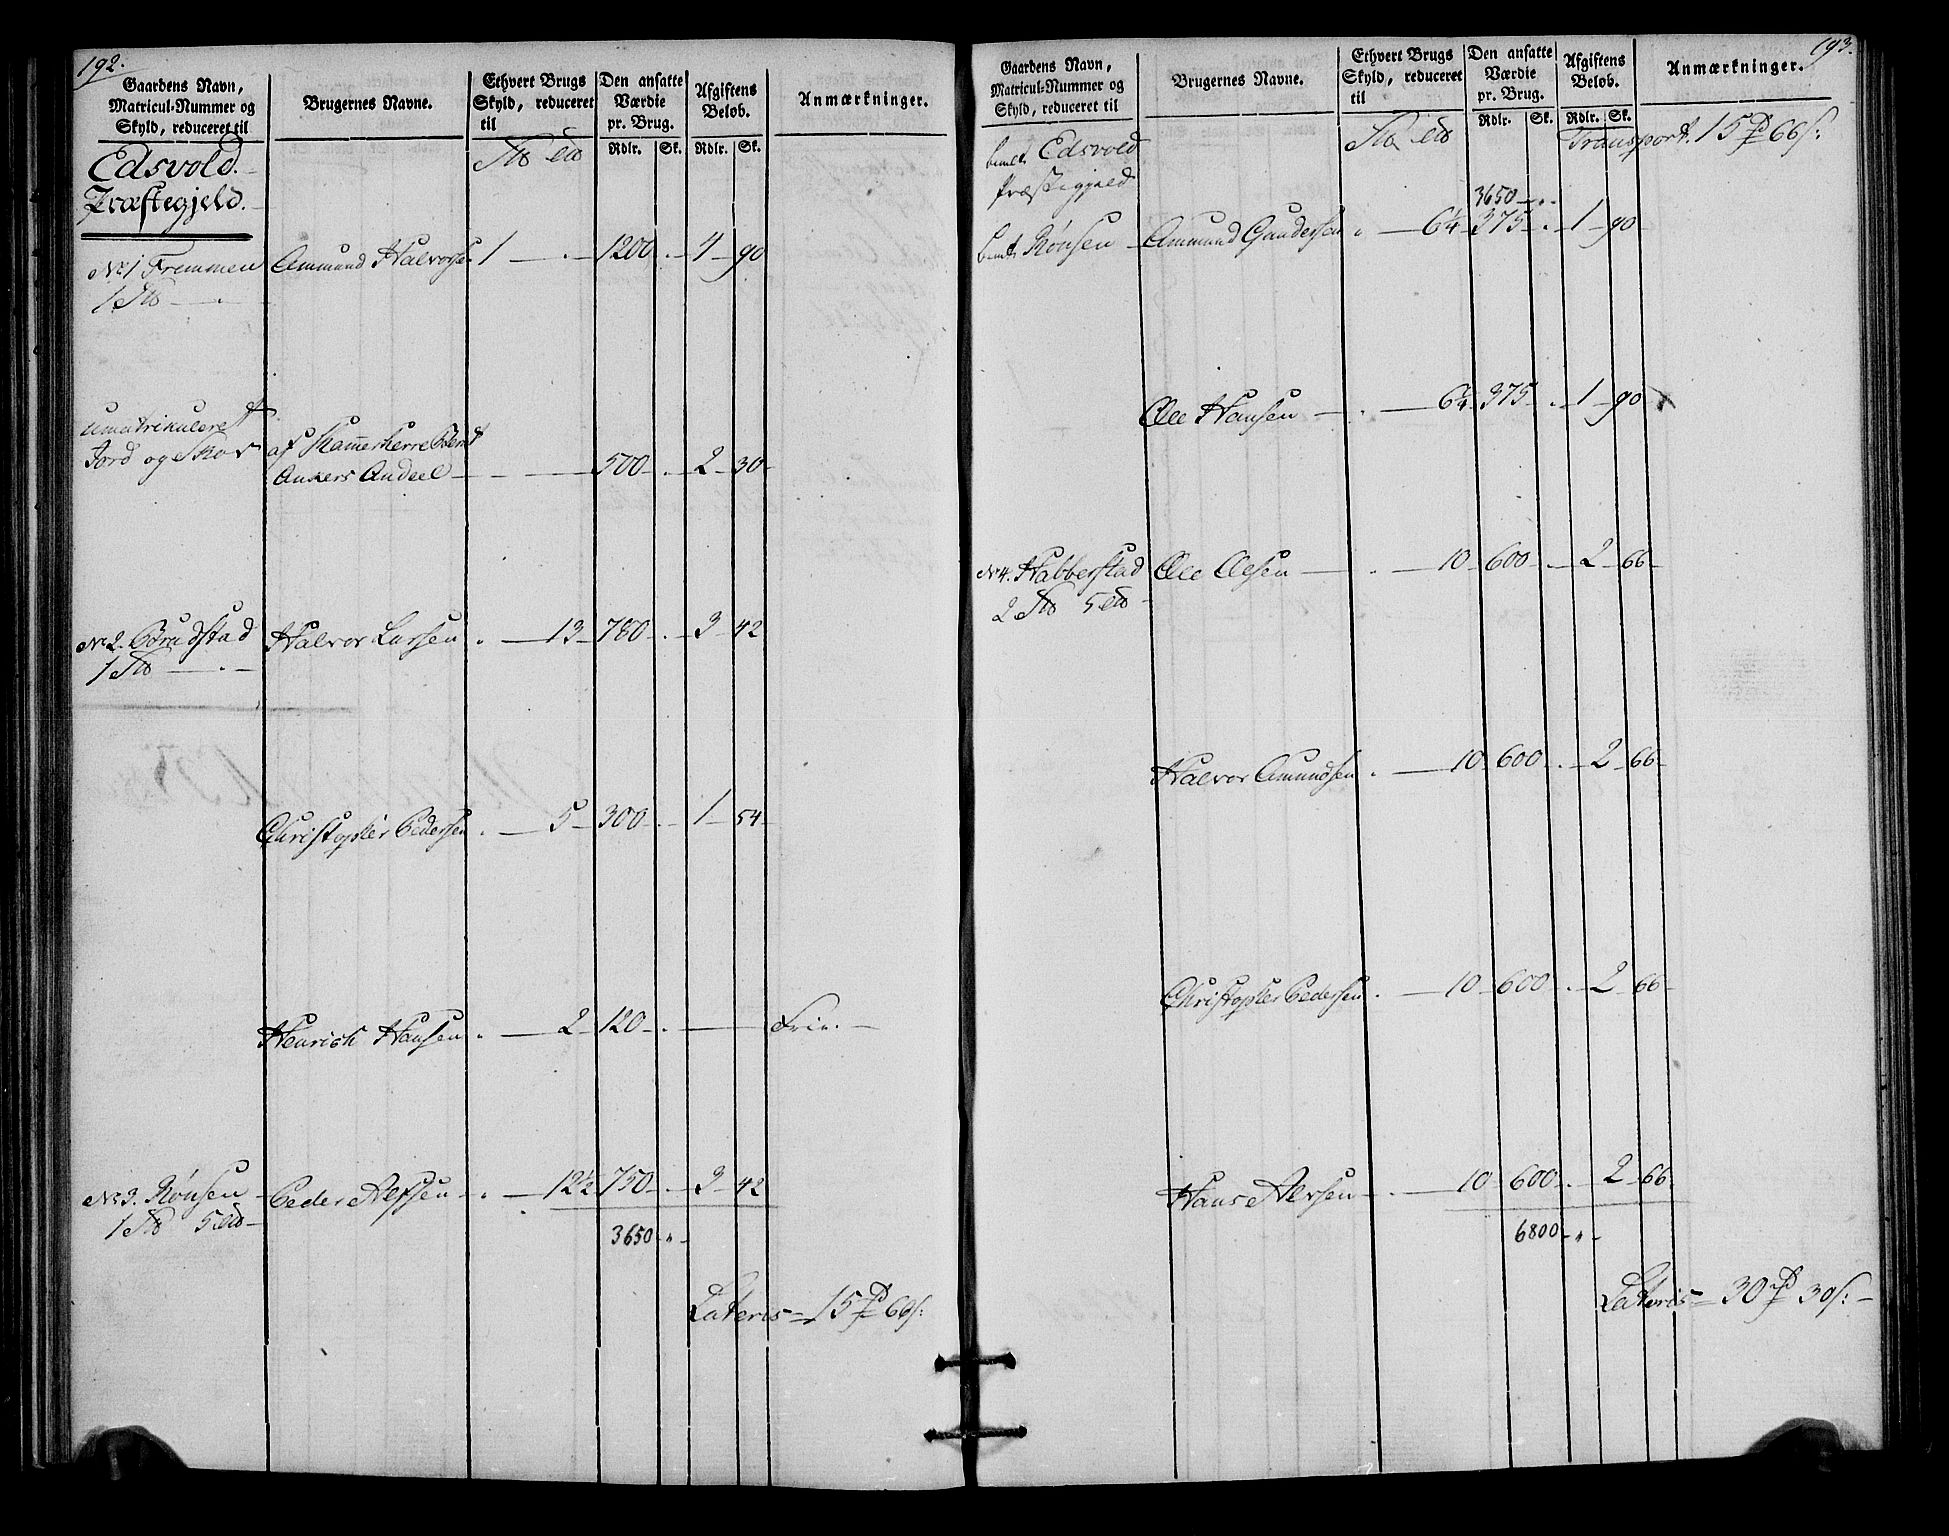 192.
Gaardens Navn, Matricul-Nummer og Skyld, reduceret til
Brugernes Navne.
Ethvert Brugs Skyld, reduceret til
Den ansatte Værdie pr. Brug.
Afgiftens Beløb.
Anmærkninger.
Rdlr. Sk. Rdlr. Sk.
Edsvold
Præstegjeld.
No 1 Fremmen Ammund Halvorse. 1 — . — 1200 . — 4 — 90
1
umatrikuleret
Jord og Skov af Kammerherre Bernt
Ankers Andeel — — — 500 — . — 2 — 30 —
No 2. Brudstad Halvor Larsen . — 13 — 780 — . — 3 — 42
1
Christopher Pedersen . — 5 — 300 — . — 1 — 54 —
Henrich Hansen . — 2 — 120 — . — Frie. —
No 3. Rønsen — Peder — . — 12½ 750 — . — 3 — 42
1 5
3650 — " —
Lateris = 15 66 s:
193.
Gaardens Navn, Matricul-Nummer og Skyld, reduceret til
Brugernes Navne.
Ethvert Brugs Skyld, reduceret til
Den ansatte Værdie pr. Brug.
Afgiftens Beløb.
Anmærkninger.
Rdlr. Sk. Rdlr. Sk.
bemt. Edsvold
Præstegjeld
Transport. 15 66 s:
3650 — " —
bemt Rønsen — Ammund Gundersen . — 6¼ 375 — . — 1 — 90
Ole Hansen — . — 6¼ 375 — . — 1 — 90
No 4. Habberstad Ole Olsen — . — 10 — 600 — . — 2 — 66 —
2 5
Halvor Amundsen . — 10 — 600 — . — 2 — 66 —
Christopher Pedersen . — 10 — 600 — . — 2 — 66 —
Hans — . — 10 — 600 — . — 2 — 66
6800 — " —
Lateris = 30 30 s: —